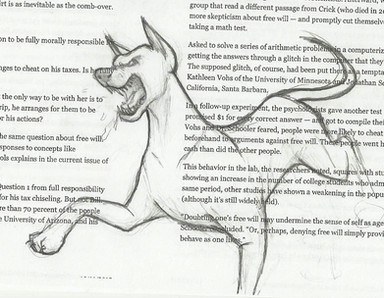 rt is as inevitable as the com-over.
on to be fully morally responsible
nges to cheat on his taxes. Is he fully
the only way to be with her is to
rip, he arranges for them to be
or his actions?
the same question about free will.
sponses to concepts like
ols explains in the current issue of
uestion 1 from full responsibility
for his tax chiseling. But
ore than 70 percent of the people
e University of Arizona, and his
group that read a different passage from Crick (who died in
more skepticism about free will — and promptly cut themselves
taking a math test.
Asked to solve a series of arithmetic problems in a computerize
getting the answers through a glitch in the computer that they
The supposed glitch, of course, had been put there as a temptation
Kathleen Vohs of the University of Minnesota and Jonathan Sc
California, Santa Barbara.
In a follow-up experiment, the psychologists gave another test
promised $1 for every correct answer — and got to compile their
Vohs and Dr. Schooler feared, people were more likely to cheat
beforehand to arguments against free will. These people went h
cash than did the other people.
This behavior in the lab, the researchers noted, squares with stu
showing an increase in the number of college students who adm
same period, other studies have shown a weakening in the popu
(although it's still widely held).
"Doubting one's free will may undermine the sense of self as age
Schooler concluded. "Or, perhaps, denying free will simply provi
behave as one likes."